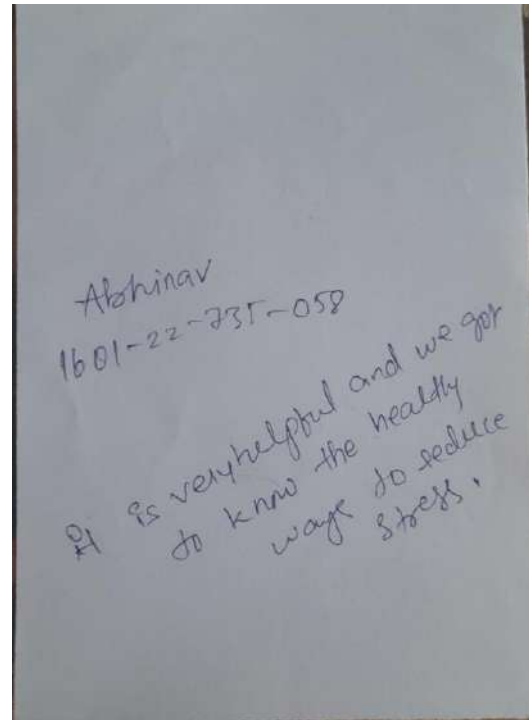 Abhinav
1601-22-735-058
It is very helpful and we got
to know the healthy
ways to reduce
stress.